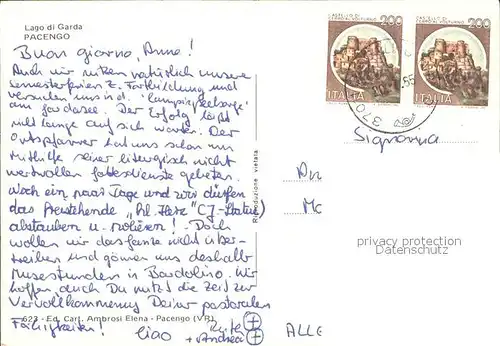 Lago di Garda
PACENGO
Buon giorno, Anne!
Auch wir nutzen natürlich unsere
Semesterferien z. Fortbildung und
versuchen uns i. d.
am Gardasee. Der Erfolg läßt
nicht lange auf sich warten. Der
Ortspfarrer hat uns schon um
Mithilfe seiner liturgisch nicht
wertvollen Gottesdienste gebeten.
Noch ein paar Tage und wir dürfen
das freistehende "Hl. Herz" (J-Statue)
abstauben u. polieren! - Doch
wollen wir das Ganze nicht über-
treiben und gönnen uns deshalb
Musestunden in Bardolino. Wir
hoffen, auch Du nutzt die Zeit zur
Vervollkommnung Deiner pastoralen
Fähigkeiten!
623 - Ed. Cart. Ambrosi Elena - Pacengo (VR)
Ciao
+ Andrea
Riproduzione vietata
CASTELLO DI CERRO AL VOLTURNO 200
ITALIA
CASTELLO DI CERRO AL VOLTURNO 200
ITALIA
370
Signorina
privacy protection
Datenschutz
ALLE